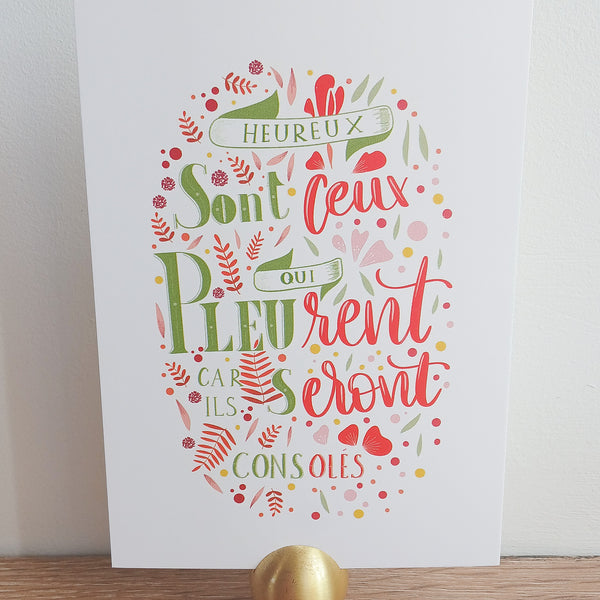 HEUREUX
Sont ceux
QUI
PLEUrent
CAR
ILS Seront
CONSOLÉS